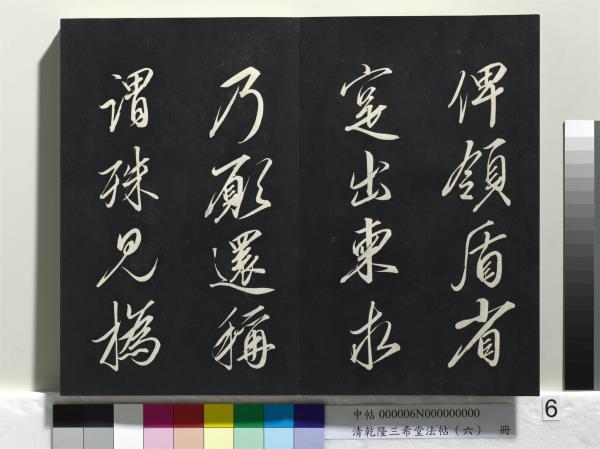 俾領盾省
寔出柬求
乃願還稱
謂殊見撝
6
中帖 000006N000000000
清乾隆三希堂法帖（六） 冊